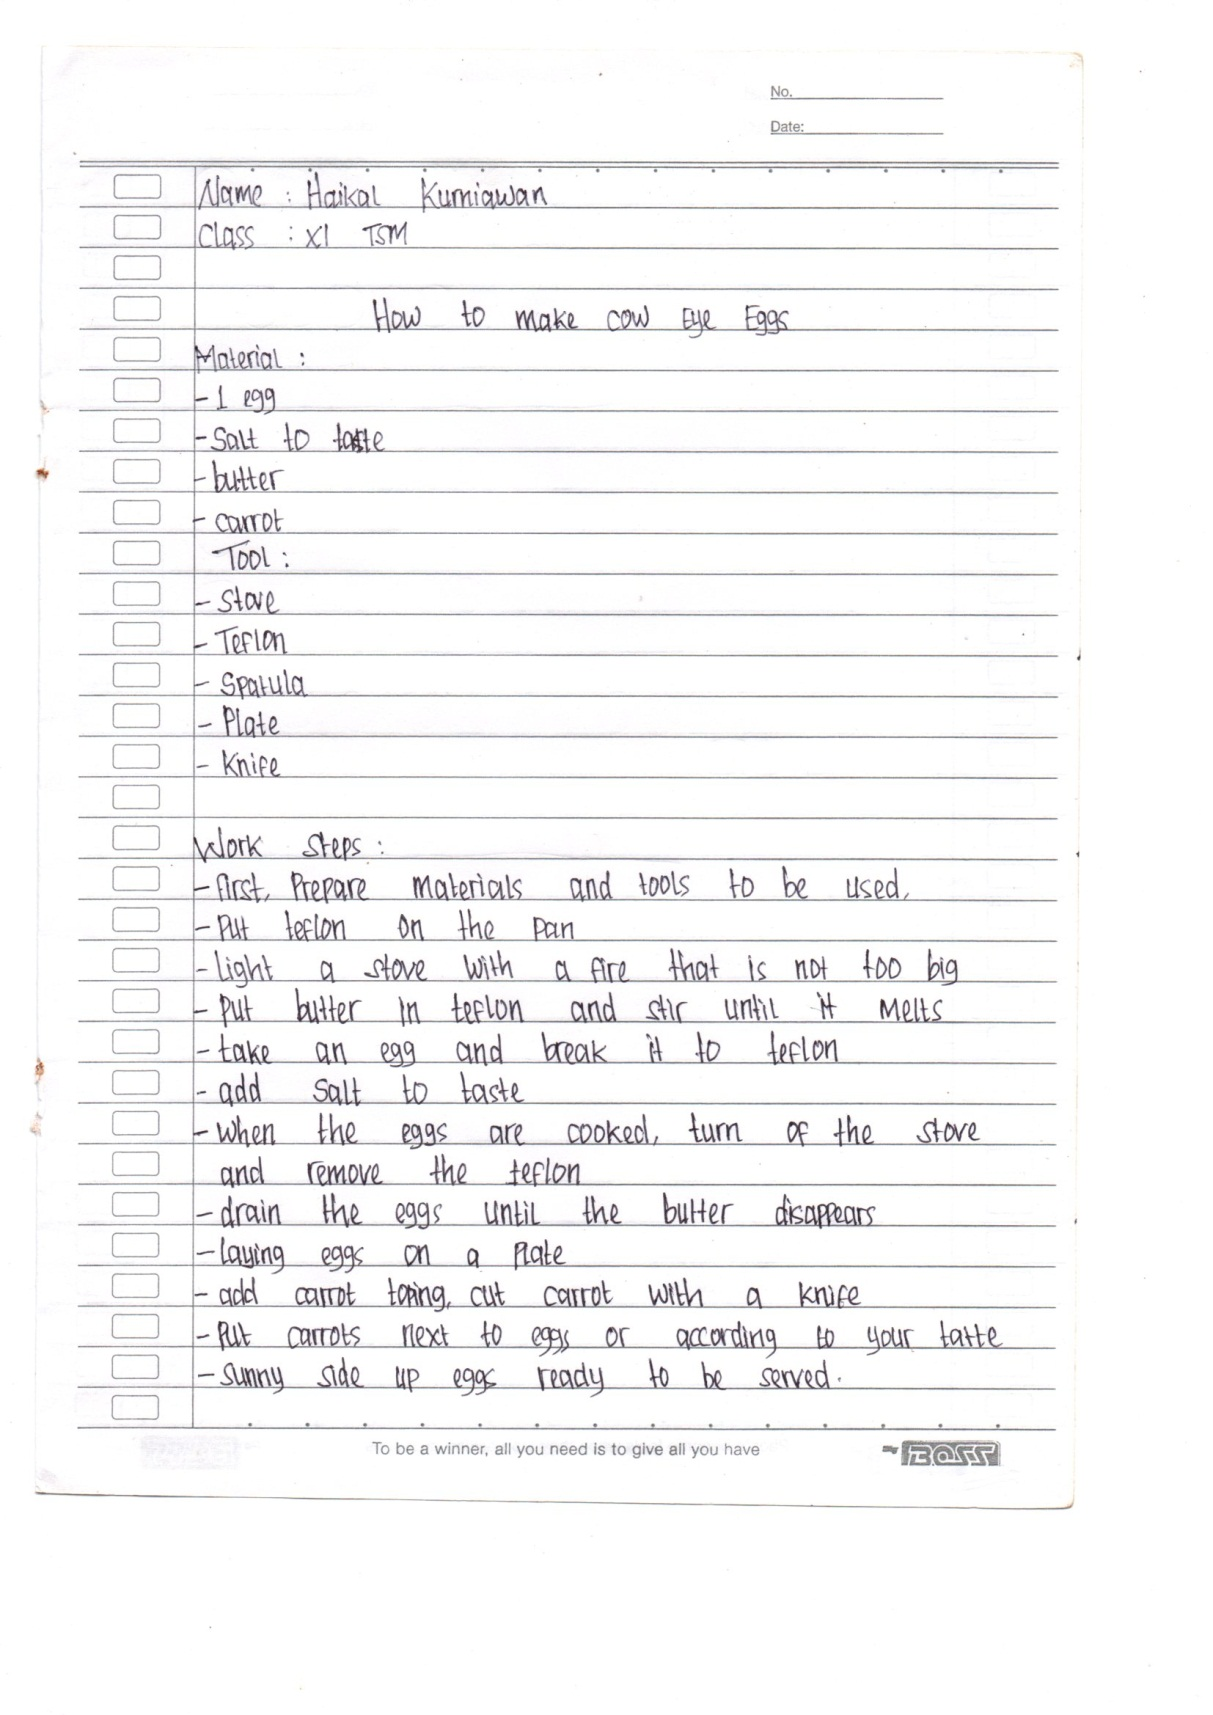 No.
Date:
Name : Haikal Kurniawan
Class : XI TSM
How to make cow Eye Eggs
Material :
- 1 egg
- Salt to taste
- butter
- carrot
Tool :
- Stove
- Teflon
- Spatula
- Plate
- Knife
Work Steps :
- first, Prepare materials and tools to be used,
- Put teflon on the pan
- light a stove with a fire that is not too big
- put butter in teflon and stir until it Melts
- take an egg and break it to teflon
- add salt to taste
- when the eggs are cooked, turn of the stove
and remove the teflon
- drain the eggs until the butter disappears
- laying eggs on a Plate
- add carrot toping, cut carrot with a knife
- Put carrots next to eggs or according to your tatte
- sunny side up eggs ready to be served.
To be a winner, all you need is to give all you have
BOSS